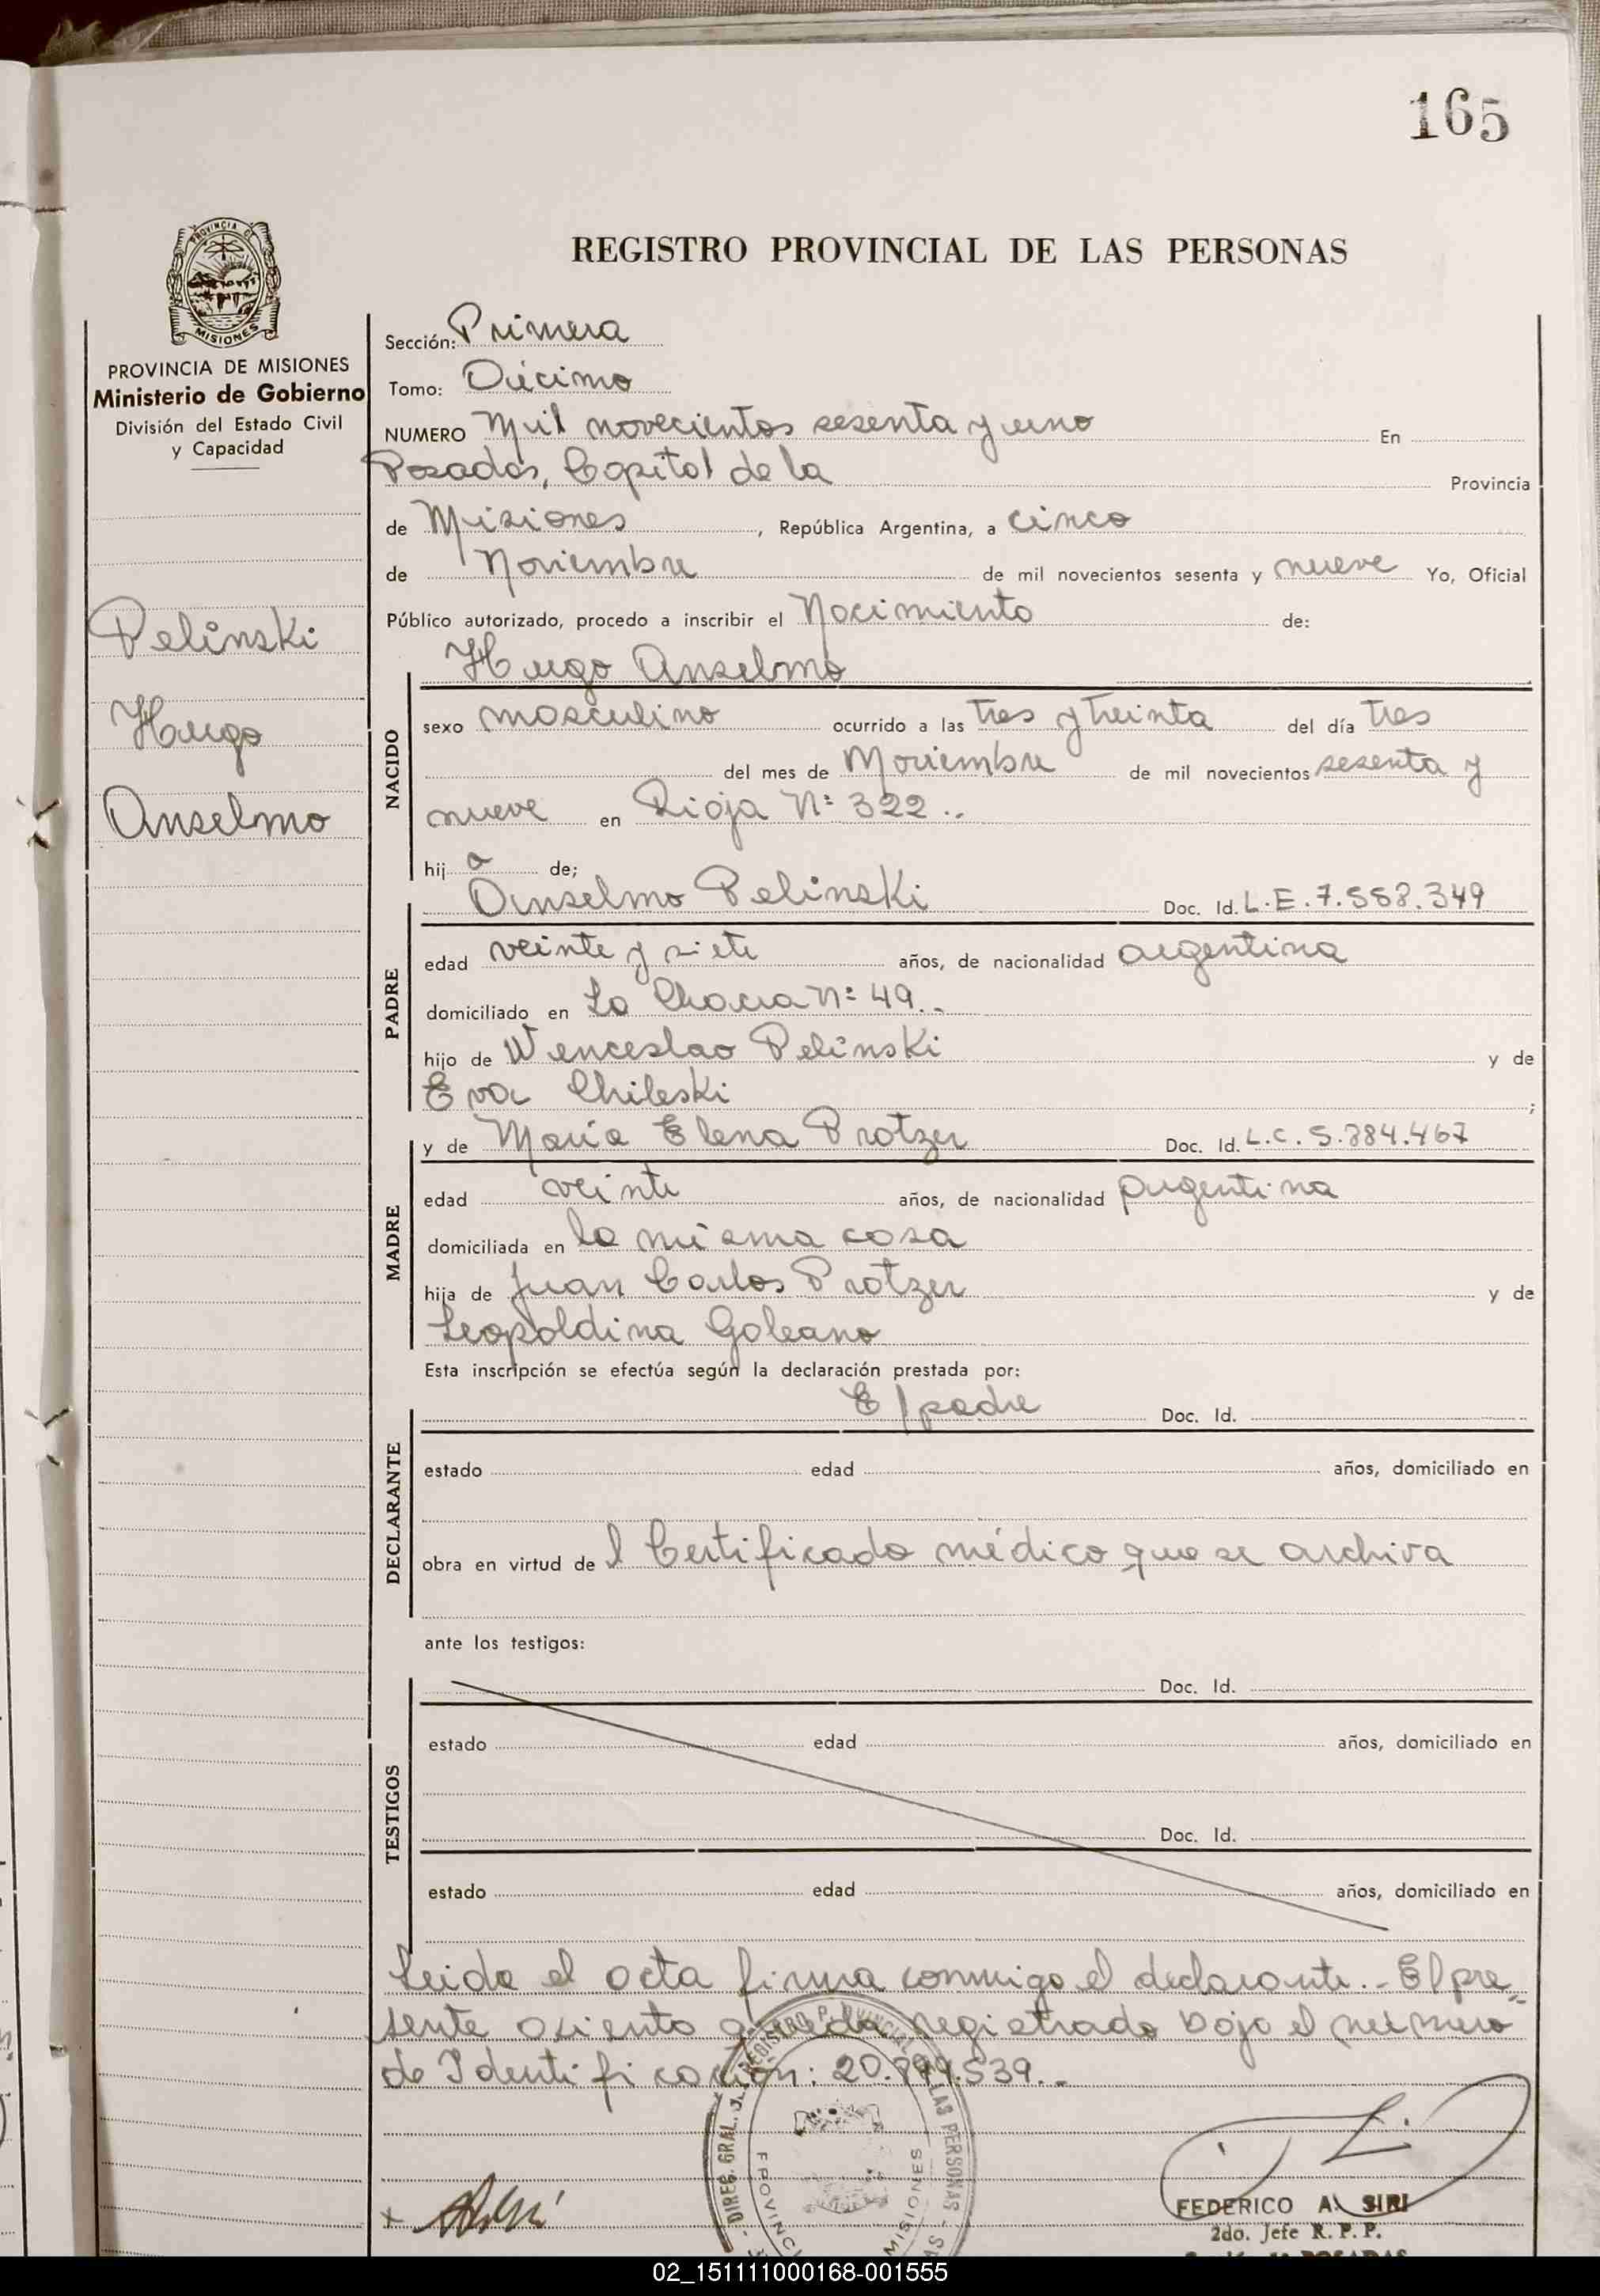 165
REGISTRO PROVINCIAL DE LAS PERSONAS
PROVINCIA DE MISIONES
Ministerio de Gobierno
División del Estado Civil
y Capacidad
Pelinski
Hugo
Anselmo
Sección: Primera
Tomo: Décimo
NUMERO Mil novecientos sesenta y uno En
Posadas, Capital de la Provincia
de Misiones, República Argentina, a cinco
de Noviembre de mil novecientos sesenta y nueve Yo, Oficial
Público autorizado, procedo a inscribir el Nacimiento de:
Hugo Anselmo
NACIDO
sexo masculino ocurrido a las tres y treinta del día tres
del mes de Noviembre de mil novecientos sesenta y
nueve en Rioja Nº 322..
hij o de;
Anselmo Pelinski Doc. Id. L.E. 7.558.349
PADRE
edad veinte y siete años, de nacionalidad argentina
domiciliado en La Chacra Nº 49..
hijo de Wenceslao Pelinski y de
Eva Chileski ;
y de María Elena Protzer Doc. Id. L.C. 5.884.467
MADRE
edad veinte años, de nacionalidad argentina
domiciliada en la misma casa
hija de Juan Carlos Protzer y de
Leopoldina Galeano
Esta inscripción se efectúa según la declaración prestada por:
El padre Doc. Id.
DECLARANTE
estado edad años, domiciliado en
obra en virtud de l Certificado médico que se archiva
ante los testigos:
Doc. Id.
TESTIGOS
estado edad años, domiciliado en
Doc. Id.
estado edad años, domiciliado en
Leida el acta firma conmigo el declarante.- El pre
sente asiento queda registrado bajo el número
de Identificación: 20.899.539..
FEDERICO A. SIRI
2do. Jefe R. P. P.
02_151111000168-001555